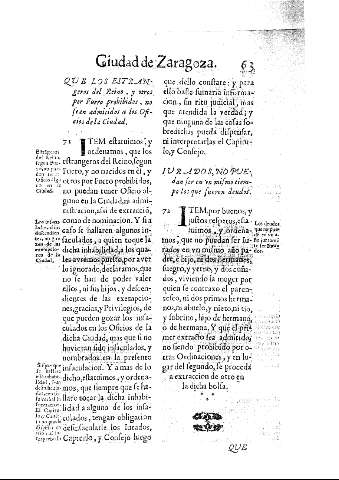 Ciudad de Zaragoza. 63
QUE LOS ESTRAN-
geros del Reino, y otros
por Fuero prohibidos, no
sean admitidos a los Ofi-
cios de la Ciudad.
71 ITEM estatuimos, y
ordenamos, que los
estrangeros del Reino, segun
Fuero, y no nacidos en él, y
otros por Fuero prohibidos,
no puedan tener Oficio al-
guno en la Ciudad, ni admi-
nistracion, assi de extracció,
como de nominacion. Y si a
caso se hallaren algunos in-
saculados, a quien toque la
dicha inhabilidad, a los qua-
les avemos puesto, por aver
lo ignorado, declaramos, que
no se han de poder valer
ellos, ni sus hijos, y descen-
dientes de las exempcio-
nes, gracias, y Privilegios, de
que pueden gozar los insa-
culados en los Oficios de la
dicha Ciudad, mas que si no
huvieran sido insaculados, y
nombrados en la presente
insaculacion. Y a mas de lo
dicho, estatuimos, y ordena-
mos, que siempre que se ha-
llare tocar la dicha inhabi-
lidad a alguno de los insa-
culados, tengan obligacion
desinsacularle los Iurados,
Capitulo, y Consejo luego
que dello constare; y para
ello baste sumaria informa-
cion, sin rito judicial, mas
que atendida la verdad; y
que ninguno de las cosas so-
bredichas pueda dispensar,
ni interpretarlas el Capitu-
lo, y Consejo.
IURADOS, NO PUE-
dan ser en un mismo tiem-
po los que fueren deudos.
72 ITEM, por buenos, y
justos respetos, esta-
tuimos, y ordena-
mos, que no puedan ser Iu-
rados en un mismo año pa-
dre, è hijo, ni dos hermanos,
suegro, y yerno, y dos cuña-
dos, viviendo la muger por
quien se contrajo el paren-
tesco, ni dos primos herma-
nos, ni abuelo, y nieto, ni tio,
y sobrino, hijo de hermano,
o de hermana. Y que el pri-
mer extracto sea admitido,
no siendo prohibido por o-
tras Ordinaciones, y en lu-
gar del segundo, se proceda
a extraccion de otro en
la dicha bolsa.
QUE